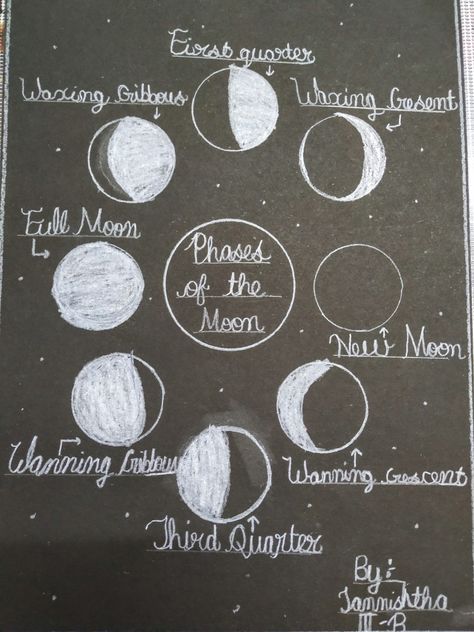 First quarter
Waxing Gibbous
Waxing Cresent
Full Moon
Phases
of the
Moon
New Moon
Wanning Gibbous
Wanning Crescent
Third Quarter
By:-
Tannishtha
III-B